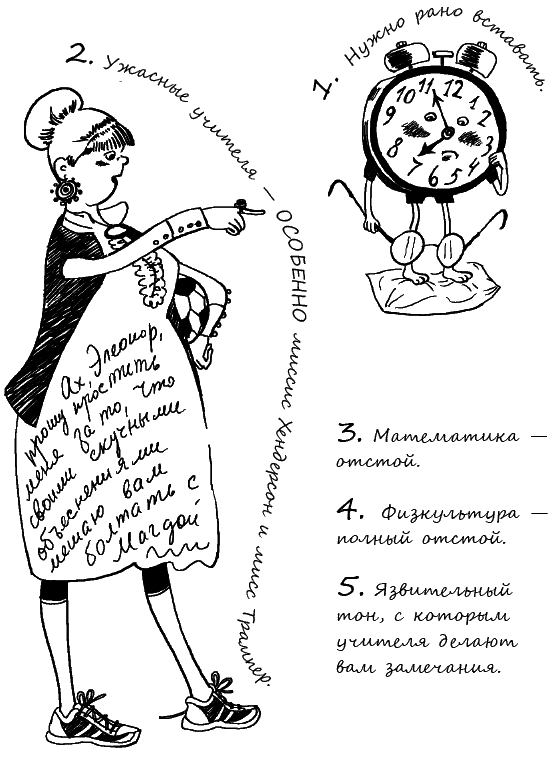 1. Нужно рано вставать.
10 11 12 1 2 3 4 5 6 7 8 9
2. Ужасные учителя — ОСОБЕННО миссис Хендерсон и мисс Трампер.
Ах, Элеонор,
прошу простить
меня за то, что
своими скучными
объяснениями
мешаю вам
болтать с
Магдой
3. Математика —
отстой.
4. Физкультура —
полный отстой.
5. Язвительный
тон, с которым
учителя делают
вам замечания.